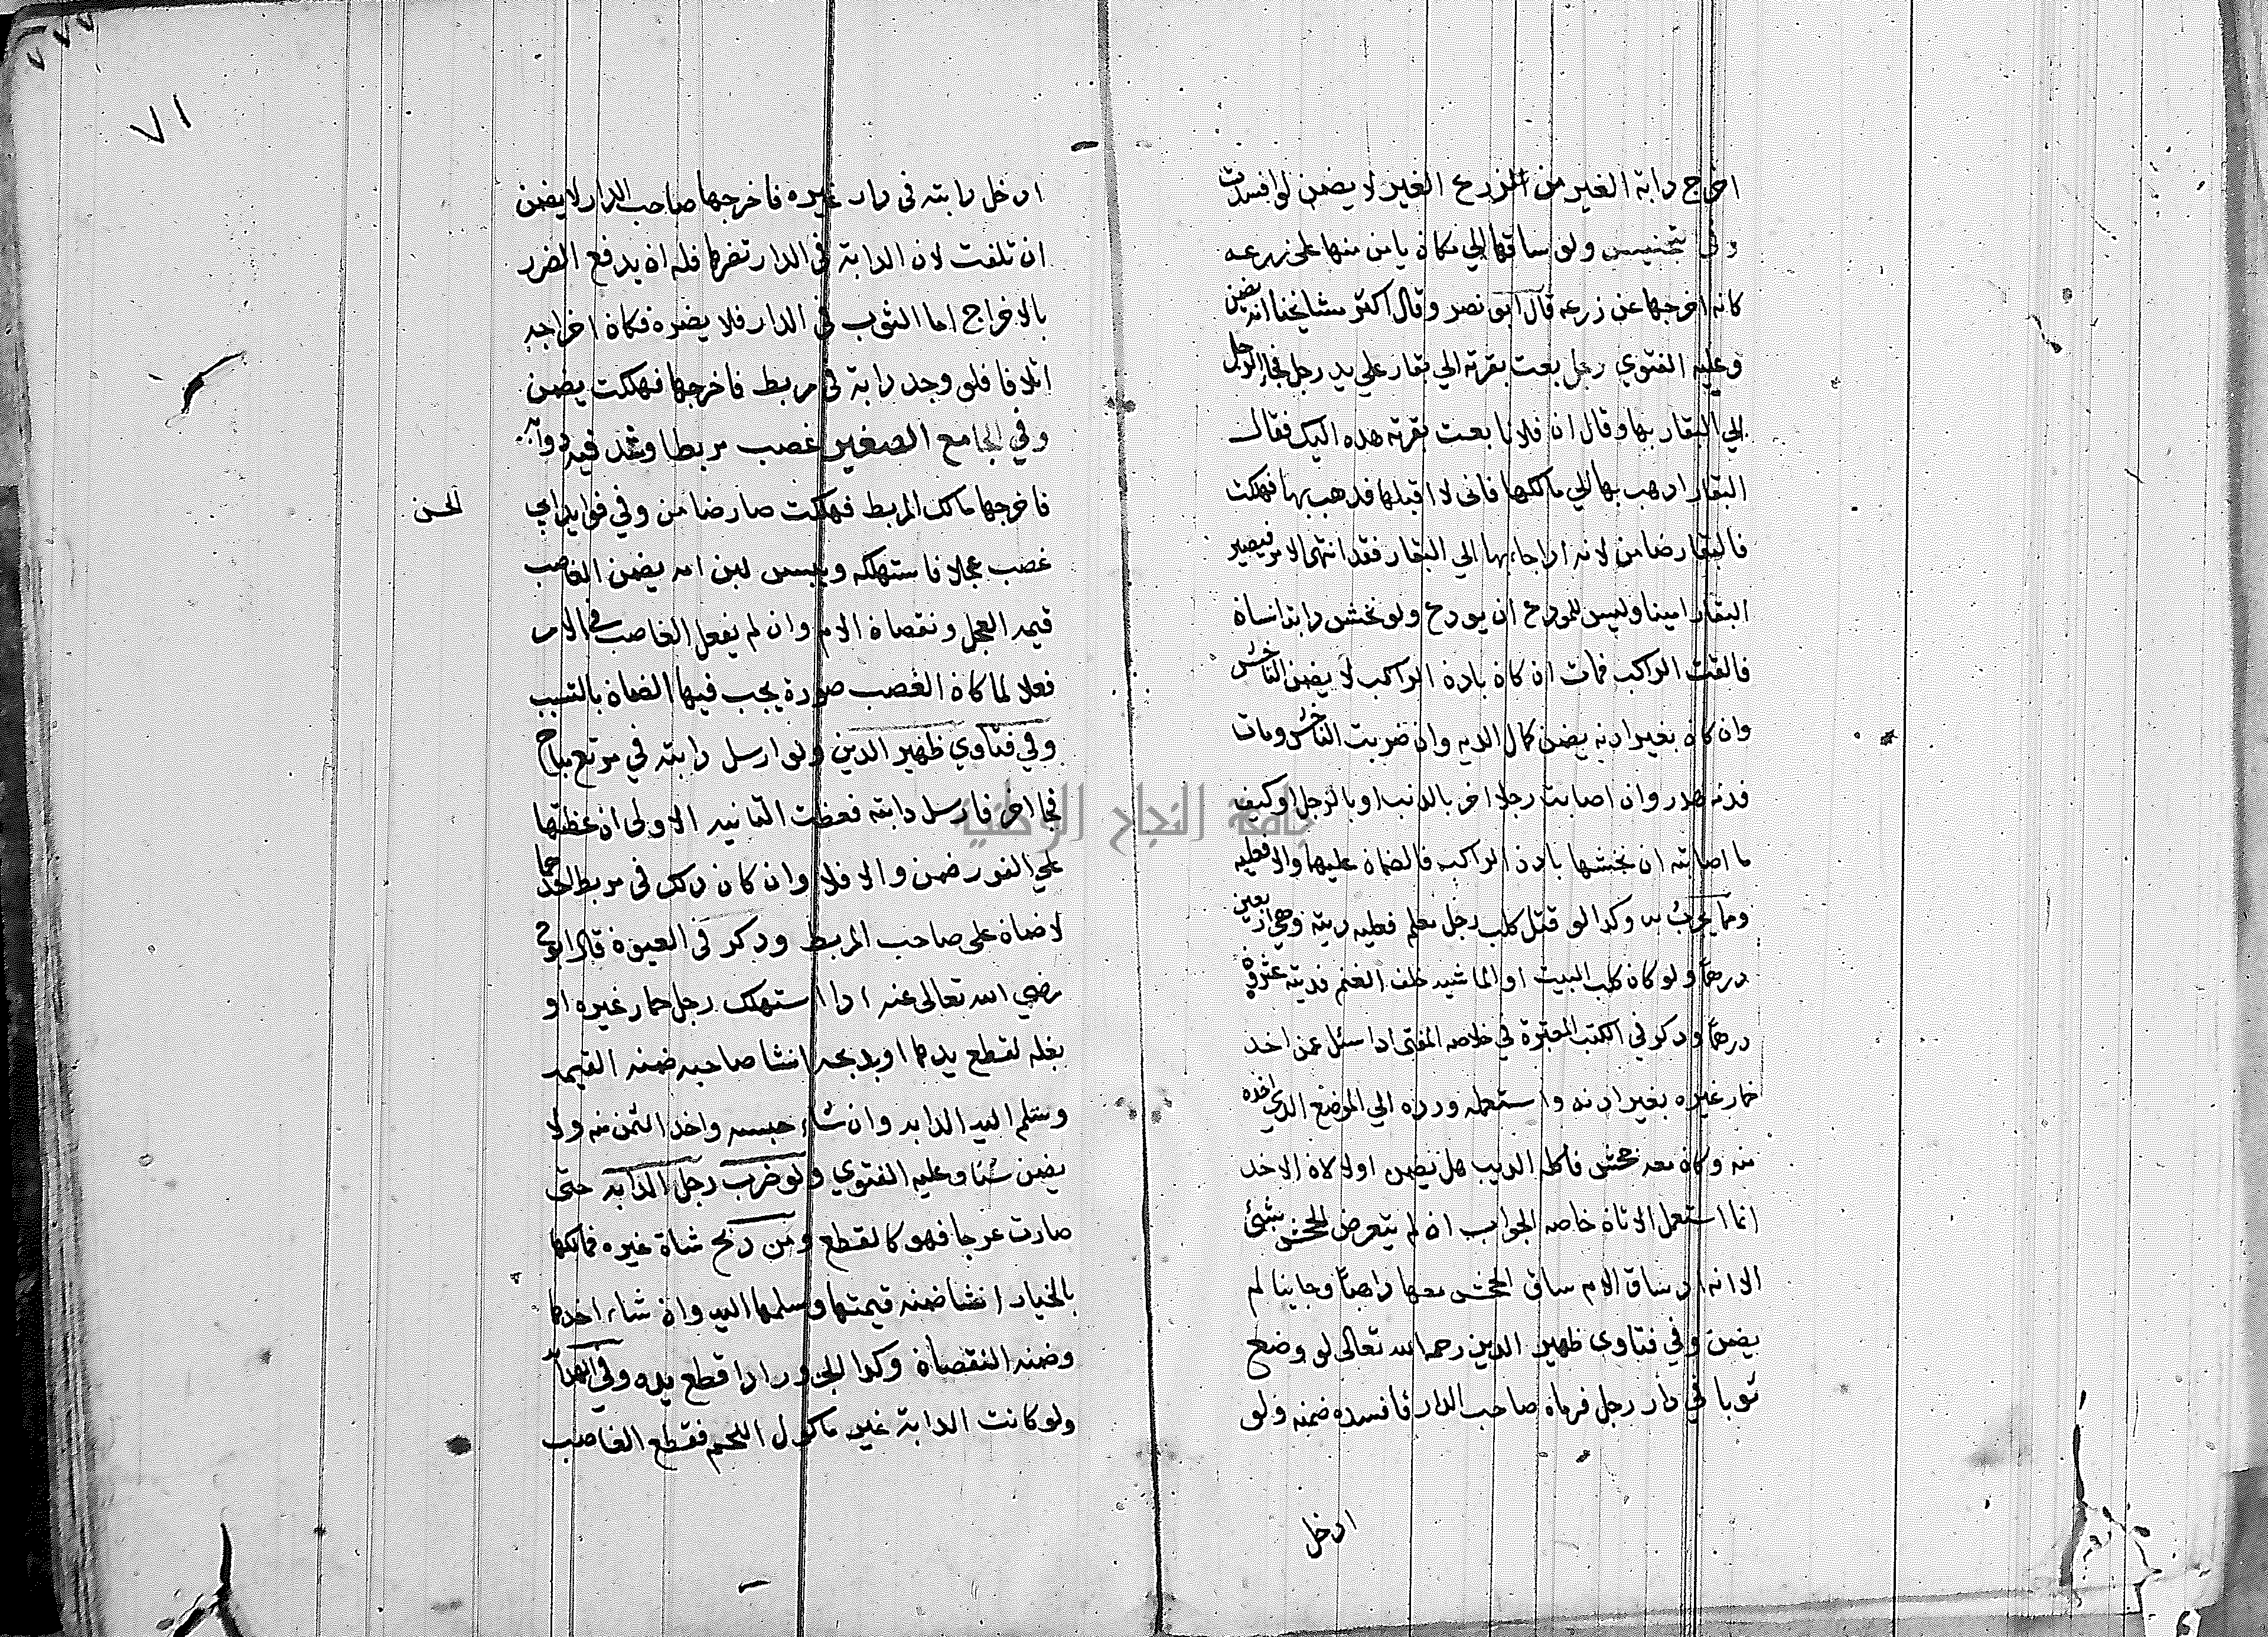 اخرج دابة الغير من الزرع الغير لا يضمن لو افسدت
وفى تجنيس ولو ساقها الي مكان يامن منها على زرعه
كانه اخرجها عن زرعه قال ابو نصر وقال اكثر مشايخنا انه يضمن
وعليه الفتوي رجل بعث بقرته الي بقار علي يد رجل فجا الرجل
الي البقار بها وقال ان فلانا بعث بقرته هده اليك فقال
البقار ادهب بها الي مالكها فانى لا اقبلها فدهب بها فهلكت
فالبقار ضامن لانه ادا جاء بها الي البقار فقد انتهى الامر فيصير
البقار امينا وليس للمودع ان يودع ولو نخش دابة انسان
فالقت الراكب فمات ان كان بادن الراكب لا يضمن الناخش
وان كان بغير ادنه يضمن كمال الديه وان ضربت الناخش ومات
فدمه هدر وان اصابت رجلا اخر بالدنب او بالرجل او كيف
ما اصابته ان نخشها بادن الراكب فالضمان عليهما والا فعليه
وكدا لو قتل كلب رجل معلم فعليه ديته وهي اربعين
درهما ولو كان كلب البيت او الماشيه خلف الغنم فديته عشرون
درهما ودكر في الكتب المعتبرة في خلاصه المفتى ادا سئل عمن اخد
حمار غيره بغير ادنه واستعمله ورده الي الموضع الدي اخده
منه وكان معه جحش فاكله الديب هل يضمن اولا لان الاخد
انما استعمل الاتان خاصه الجواب ان لم يتعرض للجحش بشئ
الا انه اد ساق الام ساق الجحش معها داهبا وجاينا لم
يضمن وفي فتاوى ظهير الدين رحمه الله تعالى لو وضع
ثوبا في دار رجل فرماه صاحب الدار فافسده ضمنه ولو
ادخل
٧١
ادخل دابته فى دار غيره فاخرجها صاحب الدار لا يضمن
ان تلفت لان الدابة في الدار تضرها فله ان يدفع الضرر
بالاخراج اما الثوب في الدار فلا يضره فكان اخراجه
اتلافا فلو وجد دابة في مربط فاخرجها فهلكت يضمن
وفي الجامع الصغير غصب مربطا وشد فيه دوابه
فاخرجها مالك المربط فهلكت صار ضامن وفي فوايد ابي
الحسن
غصب عجلا فاستهلكه ويبس لبن امه يضمن الغاصب
قيمه العجل ونقصان الام وان لم يفعل الغاصب في الام
فعلا لما كان الغصب صورة يجب فيها الضمان بالتسبب
وفي فتاوي ظهير الدين ولو ارسل دابته في مرتع مباح
فجا اخر فارسل دابته فعظت الثانيه الاولى ان عظتها
علي الفور ضمن والا فلا وان كان دلك فى مربط احدهما
لا ضمان على صاحب المربط ودكر فى العيون قال ابو ح
رضي الله تعالى عنه ادا استهلك رجل حمار غيره او
بغله لقطع يدهما او بدبحه انشا صاحبه ضمنه القيمه
وسلم اليه الدابه وان شاء حبسه واخد الثمن منه ولا
يضمن شئا وعليه الفتوي ولو ضرب رجل الدابه حتى
صارت عرجا فهو كالقطع ومن دبح شاة غيره فمالكها
بالخيار انشا ضمنه قيمتها وسلمها اليه وان شاء اخدها
وضمنه النقصان وكدا الجزور ادا قطع يده وفي الهدا
ولو كانت الدابة غير ماكول اللحم فقطع الغاصب
جامعة النجاح الوطنية